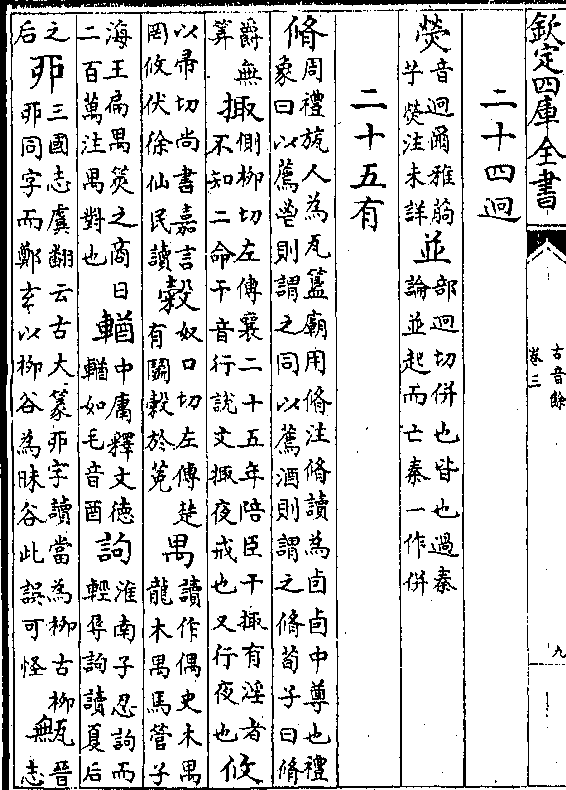 欽定四庫全書
古音餘
卷三
九
二十四迥
熒
音迥爾雅蒟
芋熒注未詳
並
部迥切併也皆也過秦
論並起而亡秦一作併
二十五有
脩
周禮旊人為瓦簋廟用脩注脩讀為卣卣中尊也禮
象曰以薦鬯則謂之同以薦酒則謂之脩荀子曰脩
爵無
筭
掫
側柳切左傳襄二十五年陪臣干掫有淫者
不知二命干音行説文掫夜戒也又行夜也
攸
以帚切尚書嘉言
罔攸伏徐仙民讀
㝅
奴口切左傳楚
有鬬㝅於菟
禺
讀作偶史木禺
龍木禺馬管子
海王扁禺筴之商日
二百萬注禺對也
輶
中庸釋文德
輶如毛音酉
訽
淮南子忍訽而
輕辱訽讀夏后
之
后
丣
三國志虞翻云古大篆丣字讀當為柳古柳
丣同字而鄭玄以柳谷為昧谷此誤可怪
甒
晉
志